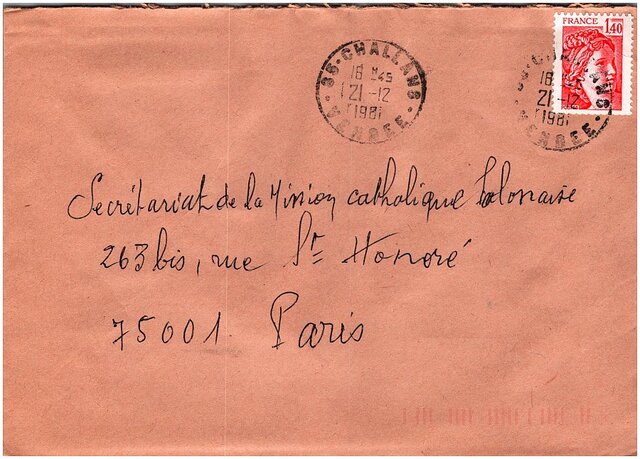 FRANCE 1,40
85-CHALLANS
18 H45
21-12
1981
VENDEE
18
21-12
1981
VENDEE
Secrétariat de la Mission catholique Polonaise
263 bis, rue St Honoré
75001 Paris